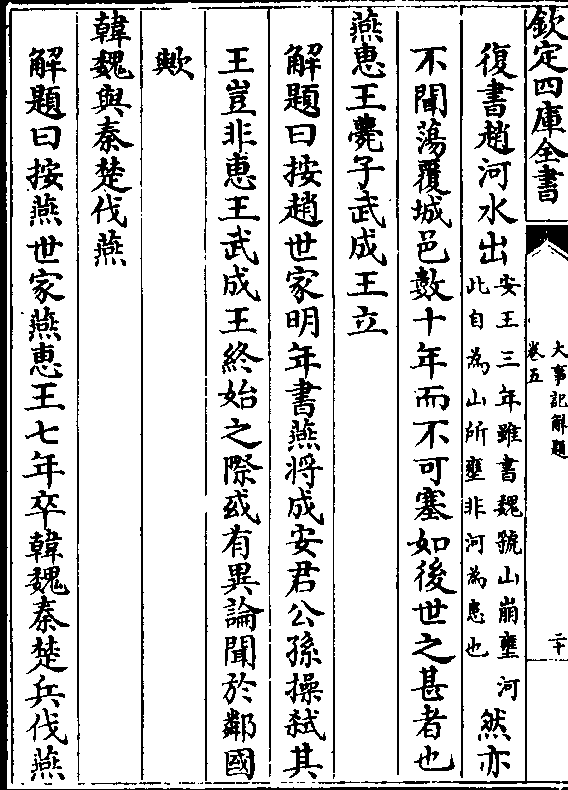 欽定四庫全書
大事記解題
卷五
二十
復書趙河水出安王三年雖書魏號山崩壅河此自為山所壅非河為患也然亦
不聞蕩覆城邑數十年而不可塞如後世之甚者也
燕惠王薨子武成王立
解題曰按趙世家明年書燕將成安君公孫操弑其
王豈非惠王武成王終始之際或有異論聞於鄰國
歟
韓魏與秦楚伐燕
解題曰按燕世家燕惠王七年卒韓魏秦楚兵伐燕